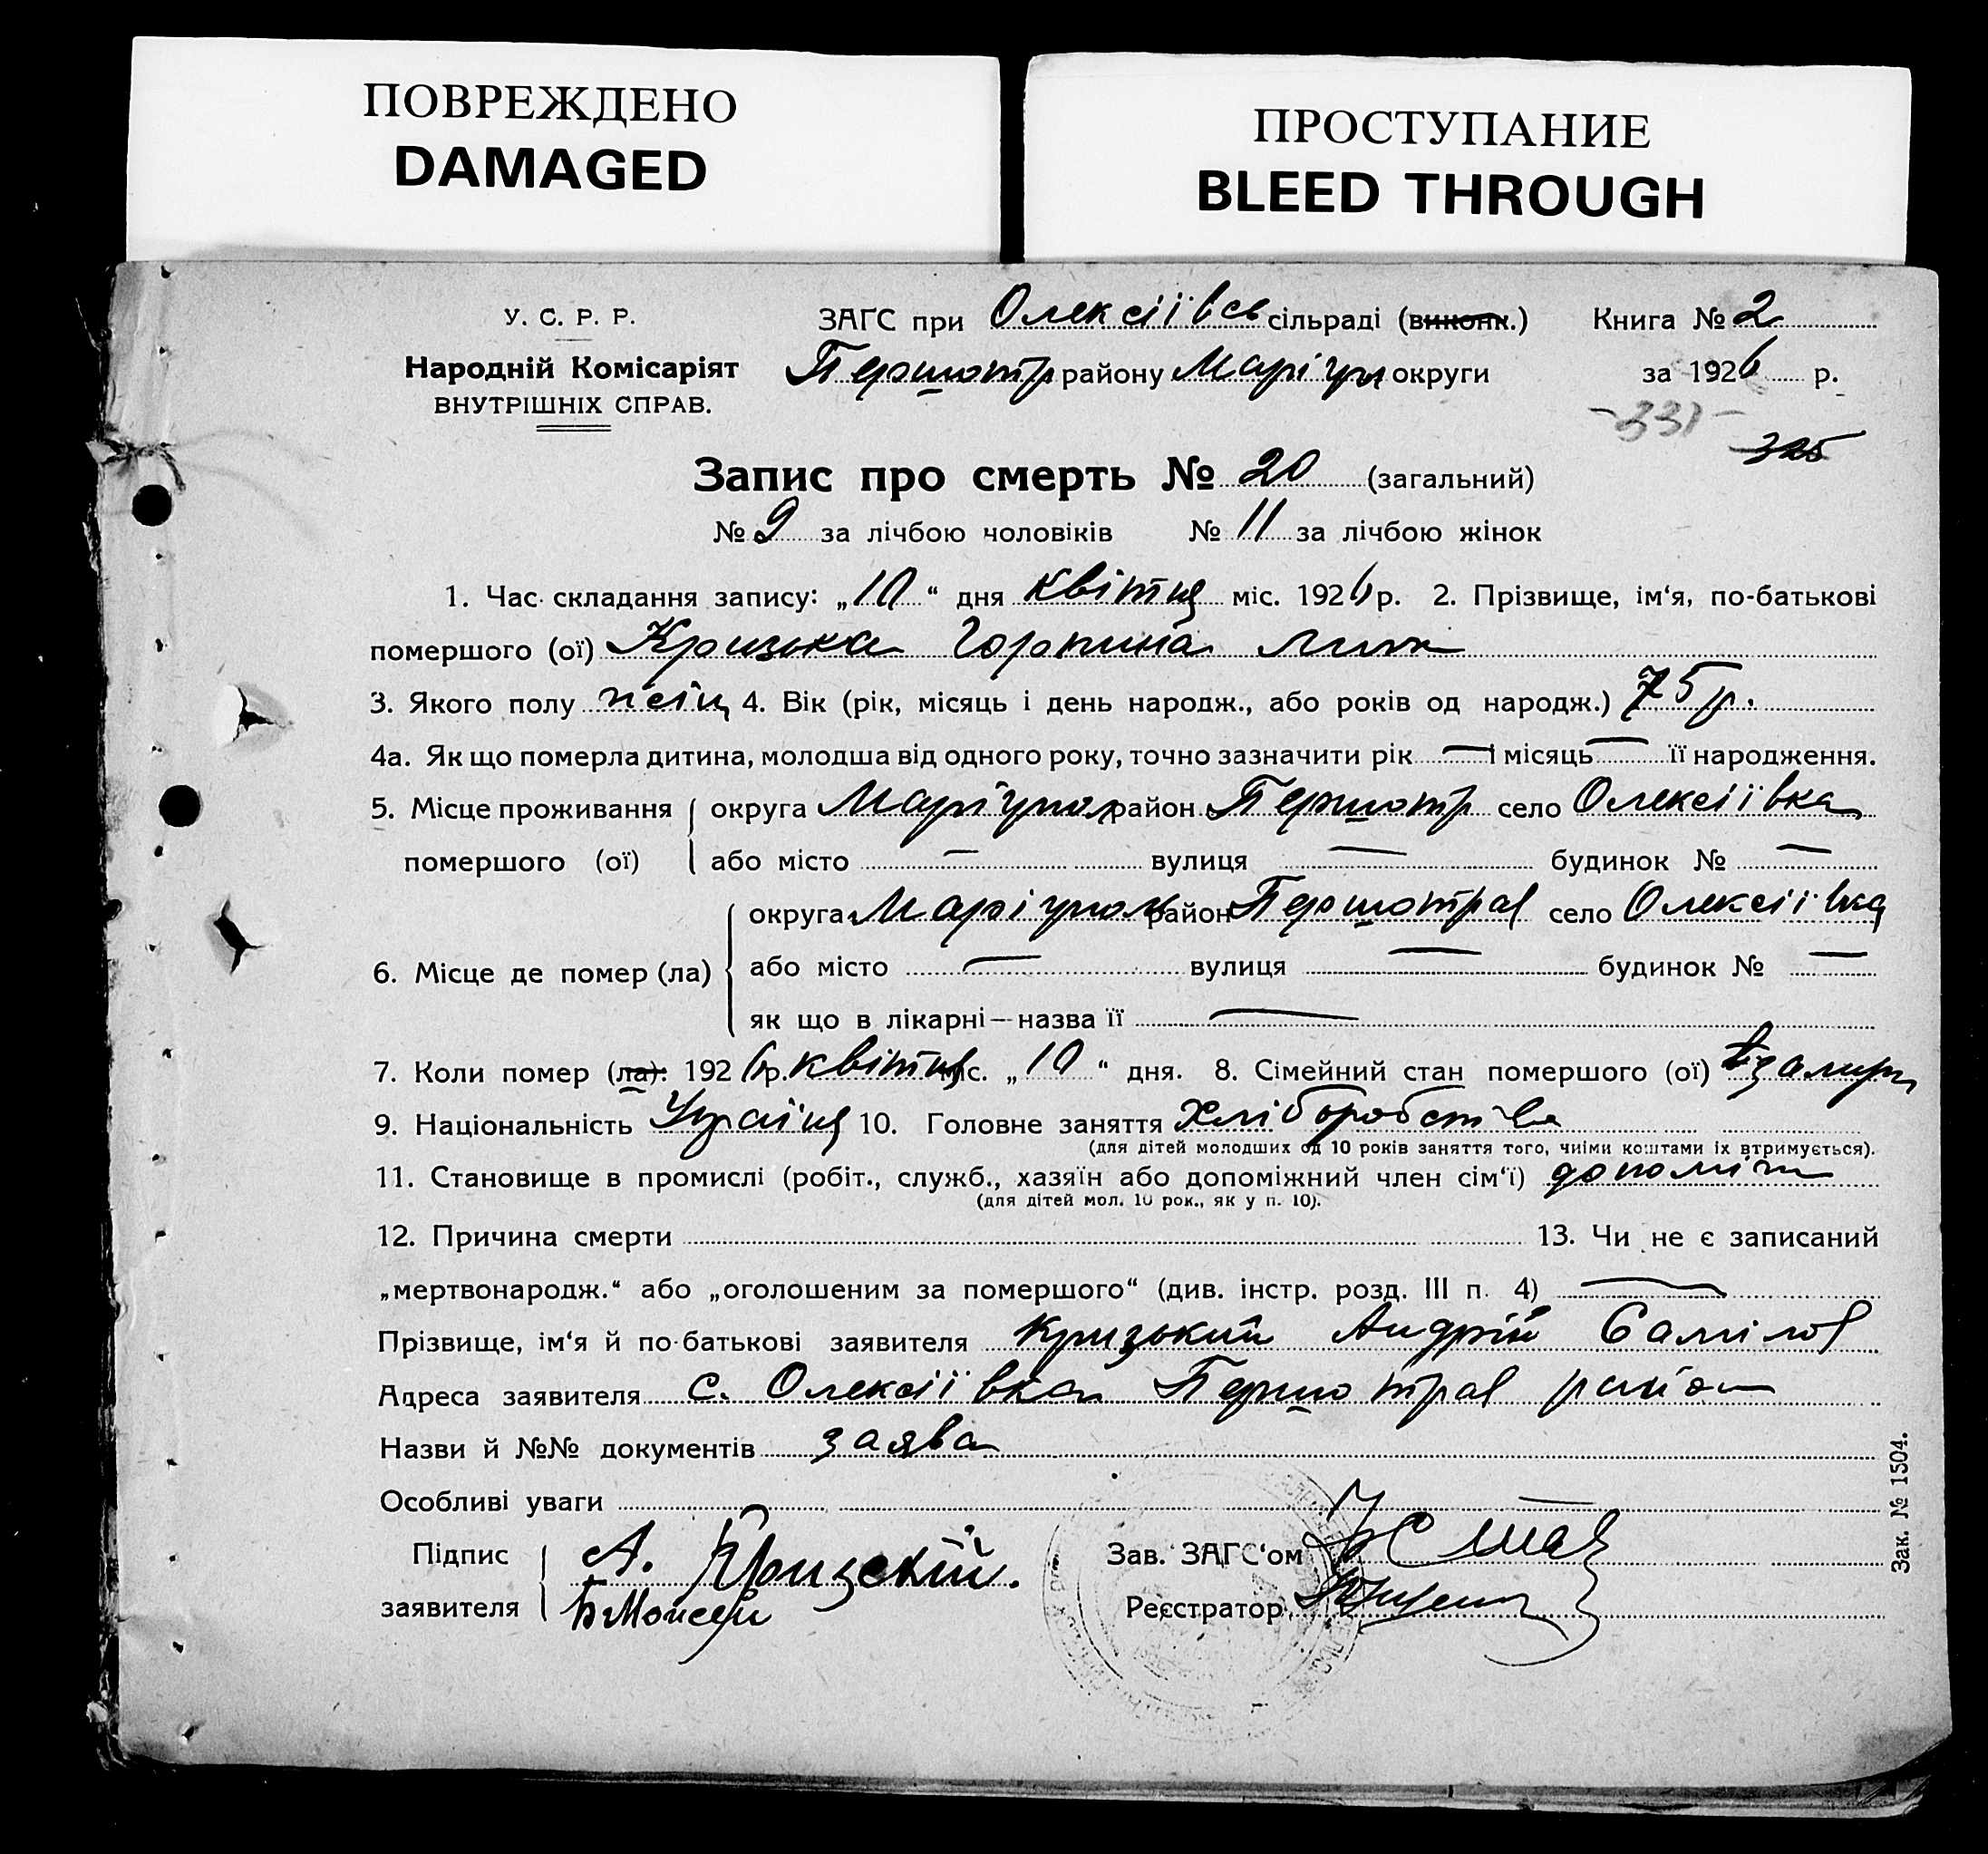 ПОВРЕЖДЕНО
DAMAGED
ПРОСТУПАНИЕ
BLEED THROUGH
У. С. Р. Р.
Народній Комісаріят
ВНУТРІШНІХ СПРАВ.
ЗАГС при Олексіївсь сільраді (виконк.) Книга № 2
Першотр району Маріуп округи за 1926 р.
-331-
325
Запис про смерть № 20 (загальний)
№ 9 за лічбою чоловіків № 11 за лічбою жінок
1. Час складання запису: „10“ дня квітня міс. 1926 р. 2. Прізвище, ім‘я, по-батькові
помершого (ої) Кризька Горпина
3. Якого полу жіноч 4. Вік (рік, місяць і день народж., або років од народж.) 75 р.
4а. Як що померла дитина, молодша від одного року, точно зазначити рік — і місяць — її народження.
5. Місце проживання помершого (ої) округа Маріупол район Першотр село Олексіївка
або місто — вулиця — будинок № —
6. Місце де помер (ла) округа Маріупол район Першотрав село Олексіївка
або місто — вулиця — будинок № —
як що в лікарні — назва її —
7. Коли помер (ла): 1926 р. квітня міс. „10“ дня. 8. Сімейний стан помершого (ої)
9. Національність Україн 10. Головне заняття Хліборобство
(для дітей молодших од 10 років заняття того, чиїми коштами їх втримується).
11. Становище в промислі (робіт., служб., хазяїн або допоміжний член сім‘ї) допоміж
(для дітей мол. 10 рок., як у п. 10).
12. Причина смерти 13. Чи не є записаний
„мертвонародж.“ або „оголошеним за помершого“ (див. інстр. розд. III п. 4) —
Прізвище, ім‘я й по-батькові заявителя Кризький Андрій
Адреса заявителя с. Олексіївка Першотрав район
Назви й №№ документів заява
Особливі уваги —
Підпис заявителя А. Кризский.
Зав. ЗАГС‘ом
Реєстратор
Зак. № 1504.